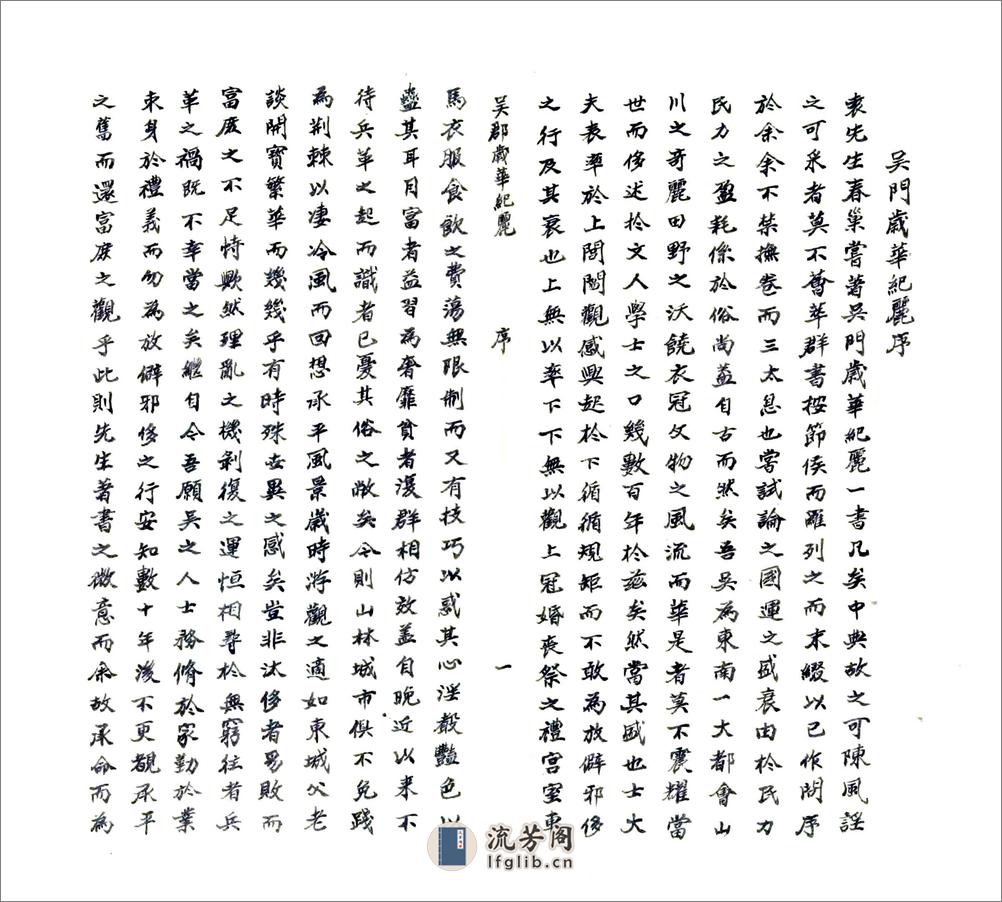 吳門歲華紀麗序
袁先生春巢嘗著吳門歲華紀麗一書凡吳中典故之可陳風謠
之可采者莫不薈萃群書按節侯而羅列之而末綴以己作問序
於余余不禁撫卷而三太息也嘗試論之國運之盛衰由於民力
民力之盈耗係於俗尚蓋自古而然矣吾吳為東南一大都會山
川之奇麗田野之沃饒衣冠文物之風流而華是者莫不震耀當
世而侈述於文人學士之口幾數百年於茲矣然當其盛也士大
夫表率於上閭閻觀感興起於下循循規矩而不敢為放僻邪侈
之行及其衰也上無以率下下無以觀上冠婚喪祭之禮宮室車
吳郡歲華紀麗 序 一
馬衣服食飲之費蕩無限制而又有技巧以惑其心淫聲豔色以
蠱其耳目富者益習為奢靡貧者漫群相仿效蓋自晚近以來不
待兵革之起而識者已憂其俗之敝矣今則山林城市俱不免踐
為荆棘以淒冷風而回想承平風景歲時游觀之適如東城父老
談開寶繁華而幾幾乎有時殊世異之感矣豈非汰侈者易敗而
富庶之不足恃歟然理亂之機剝復之運恒相尋於無窮往者兵
革之禍既不幸當之矣繼自今吾願吳之人士務脩於家勤於業
束身於禮義而勿為放僻邪侈之行安知數十年後不更覩承平
之舊而還富庶之觀乎此則先生著書之微意而余故承命而為
流芳阁
lfglib.cn